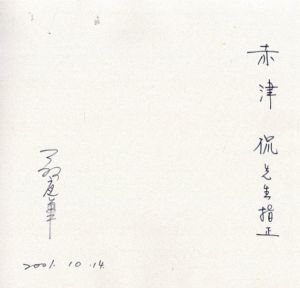 赤津 侃 先生指正
2001.10.14.